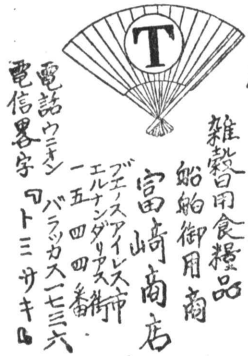 T
雑穀日用食糧品
船舶御用商
富﨑商店
ブエノスアイレス市
エルナンダリアス街
一五四四番
電話ウニオン
バラッカス一七三六
電信畧字
『トミサキ』